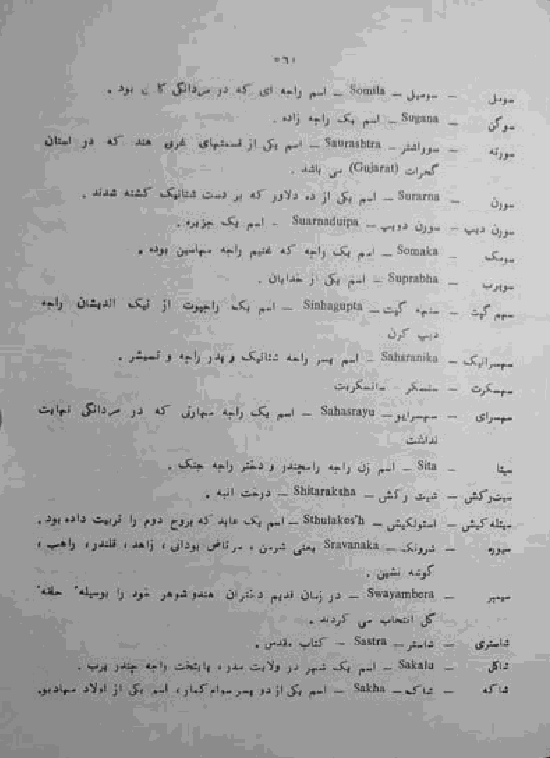 «٦»
سومل — سومیل — Somila — اسم راجه ای که در مردانگی کا ن بود .
سوگن — Sugana — اسم یک راجه زاده .
سورته — سوراشتر — Saurashtra — اسم یکی از قسمتهای غربی هند که در استان
گجرات (Gujarat) می باشد .
سورن — Surarna — اسم یکی از ده دلاور که بر دست شتانیک کشته شدند .
سورن دیپ — سورن دویپ — Suarnaduipa — اسم یک جزیره .
سومک — Somaka — اسم یک راجه که غنیم راجه مهاسین بوده .
سوپرب — Suprabha — اسم یکی از خدایان .
سهم گپت — سنهه گپت — Sinhagupta — اسم یک راجپوت از نیک اندیشان راجه
دیپ کرن
سهسرانیک — Sahsranika — اسم پسر راجه شتانیک و پدر راجه و تمیشر .
سهسکرت — سنسکر سانسکریت
سهسرای — سهسرایو — Sahasrayu — اسم یک راجه مهارتی که در مردانگی نهایت
نداشت
سیتا — Sita — اسم زن راجه رامچندر و دختر راجه جنک .
سیت‌وکش — شیت وکش — Shitaraksha — درخت انبه .
سیتله‌کیش — استولکیش — Sthulakes'h — اسم یک عابد که بروج دوم را تربیت داده بود .
سیوره — شرونک — Sravanaka یعنی شرمن ، مرتاض بودائی ، زاهد ، قلندر ، راهب ،
گوشه نشین .
سیمبر — Swayambera — در زمان قدیم دختران هندو شوهر خود را بوسیله حلقه
گل انتخاب می کردند .
شاستری — شاستر — Sastra — کتاب مقدس .
شاکل — Sakala — اسم یک شهر در ولایت مدر ، پایتخت راجه چندر پرب .
شاکه — شاک — Sakha — اسم یکی از دو پسر سوام کمار ، اسم یکی از اولاد مهادیو .